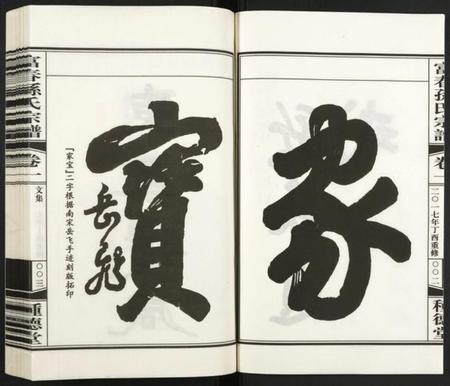 富春孫氏宗譜
卷一
二〇一七年丁酉重修
〇〇二
種德堂
家
寶
岳飛
「家宝」二字根据南宋岳飞手迹刻版拓印
富春孫氏宗譜
卷一
文集
〇〇三
種德堂